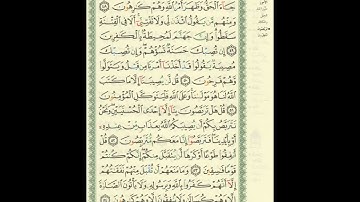 جَآءَ ٱلْحَقُّ وَظَهَرَ أَمْرُ ٱللَّهِ وَهُمْ كَٰرِهُونَ ٤٨
وَمِنْهُم مَّن يَقُولُ ٱئْذَن لِّى وَلَا تَفْتِنِّىٓ أَلَا فِى ٱلْفِتْنَةِ
سَقَطُوا۟ وَإِنَّ جَهَنَّمَ لَمُحِيطَةٌۢ بِٱلْكَٰفِرِينَ ٤٩
إِن تُصِبْكَ حَسَنَةٌ تَسُؤْهُمْ وَإِن تُصِبْكَ
مُصِيبَةٌ يَقُولُوا۟ قَدْ أَخَذْنَآ أَمْرَنَا مِن قَبْلُ وَيَتَوَلَّوا۟
وَّهُمْ فَرِحُونَ ٥٠ قُل لَّن يُصِيبَنَآ إِلَّا مَا كَتَبَ
ٱللَّهُ لَنَا هُوَ مَوْلَىٰنَا وَعَلَى ٱللَّهِ فَلْيَتَوَكَّلِ ٱلْمُؤْمِنُونَ
٥١ قُلْ هَلْ تَرَبَّصُونَ بِنَآ إِلَّآ إِحْدَى ٱلْحُسْنَيَيْنِ وَنَحْنُ
نَتَرَبَّصُ بِكُمْ أَن يُصِيبَكُمُ ٱللَّهُ بِعَذَابٍ مِّنْ عِندِهِۦٓ
أَوْ بِأَيْدِينَا فَتَرَبَّصُوٓا۟ إِنَّا مَعَكُم مُّتَرَبِّصُونَ ٥٢ قُلْ
أَنفِقُوا۟ طَوْعًا أَوْ كَرْهًا لَّن يُتَقَبَّلَ مِنكُمْ إِنَّكُمْ كُنتُمْ
قَوْمًا فَٰسِقِينَ ٥٣ وَمَا مَنَعَهُمْ أَن تُقْبَلَ مِنْهُمْ نَفَقَٰتُهُمْ
إِلَّآ أَنَّهُمْ كَفَرُوا۟ بِٱللَّهِ وَبِرَسُولِهِۦ وَلَا يَأْتُونَ ٱلصَّلَوٰةَ
إِلَّا وَهُمْ كُسَالَىٰ وَلَا يُنفِقُونَ إِلَّا وَهُمْ كَٰرِهُونَ ٥٤